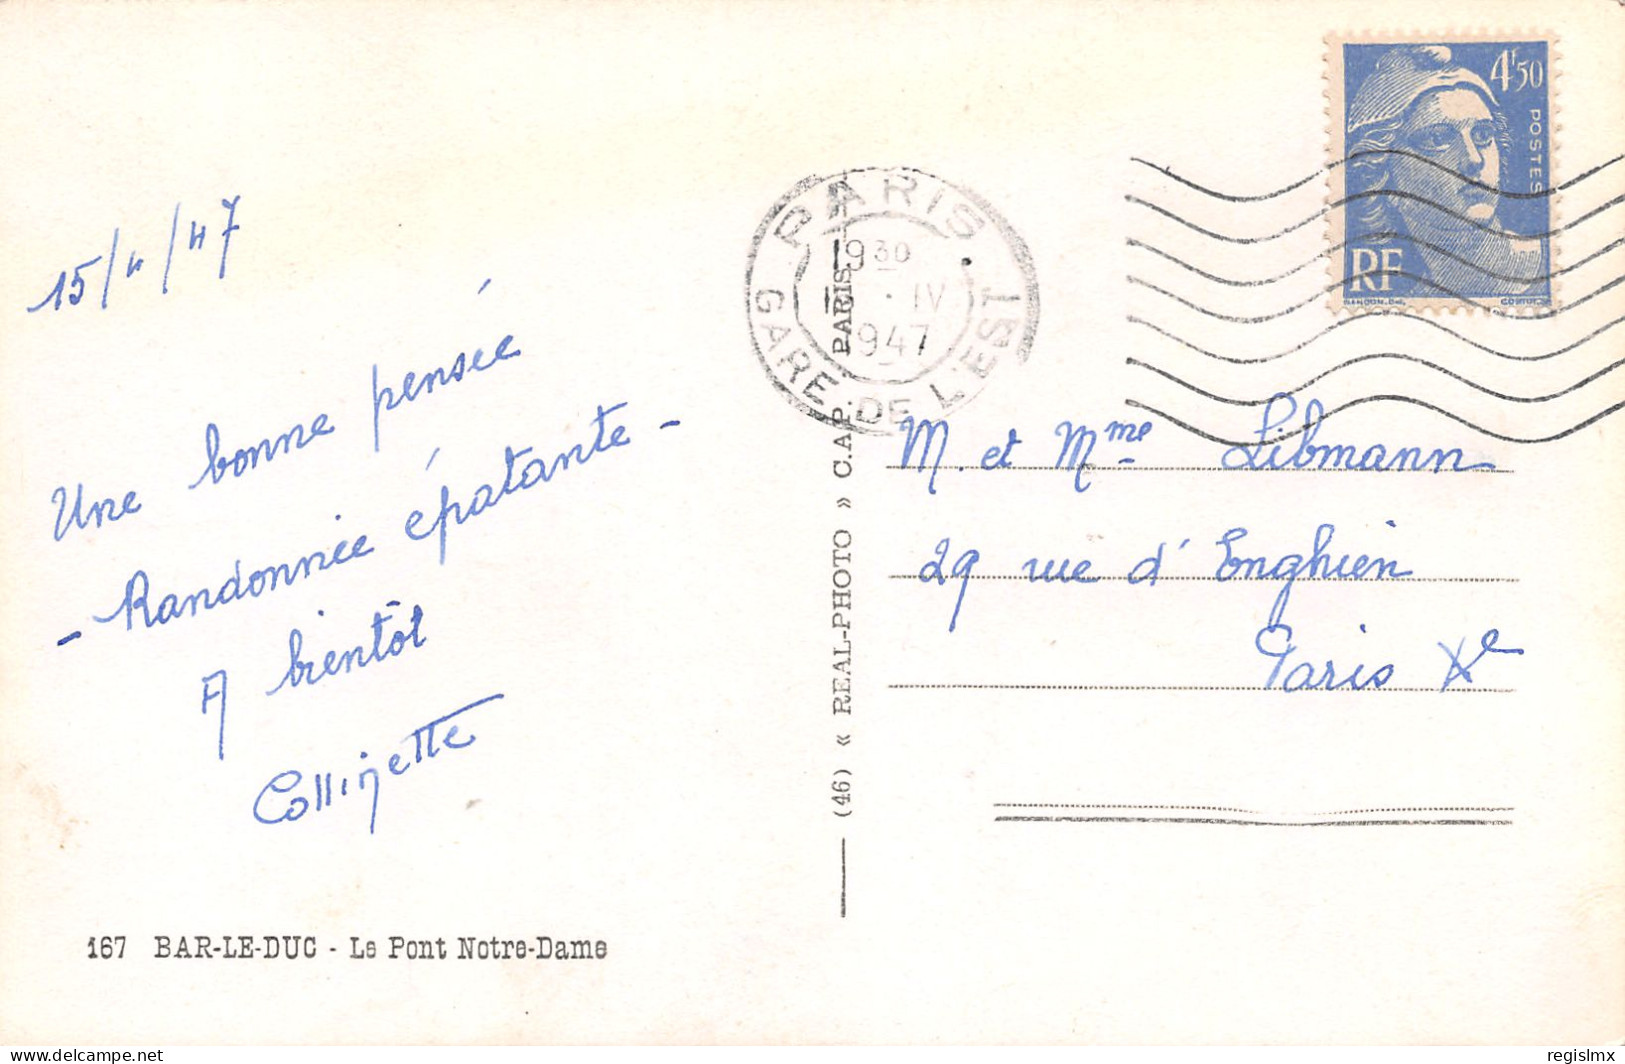 15/4/47
Une bonne pensée
- Randonnée épatante -
A bientôt
167 BAR-LE-DUC - Le Pont Notre-Dame
(46) « REAL-PHOTO » C.A.P. PARIS
PARIS
1930
IV
1947
GARE DE L'EST
4F50
POSTES
RF
GANDON
M. et Mme Libmann
29 rue d'Enghien
Paris Xe
delcampe.net
regislmx